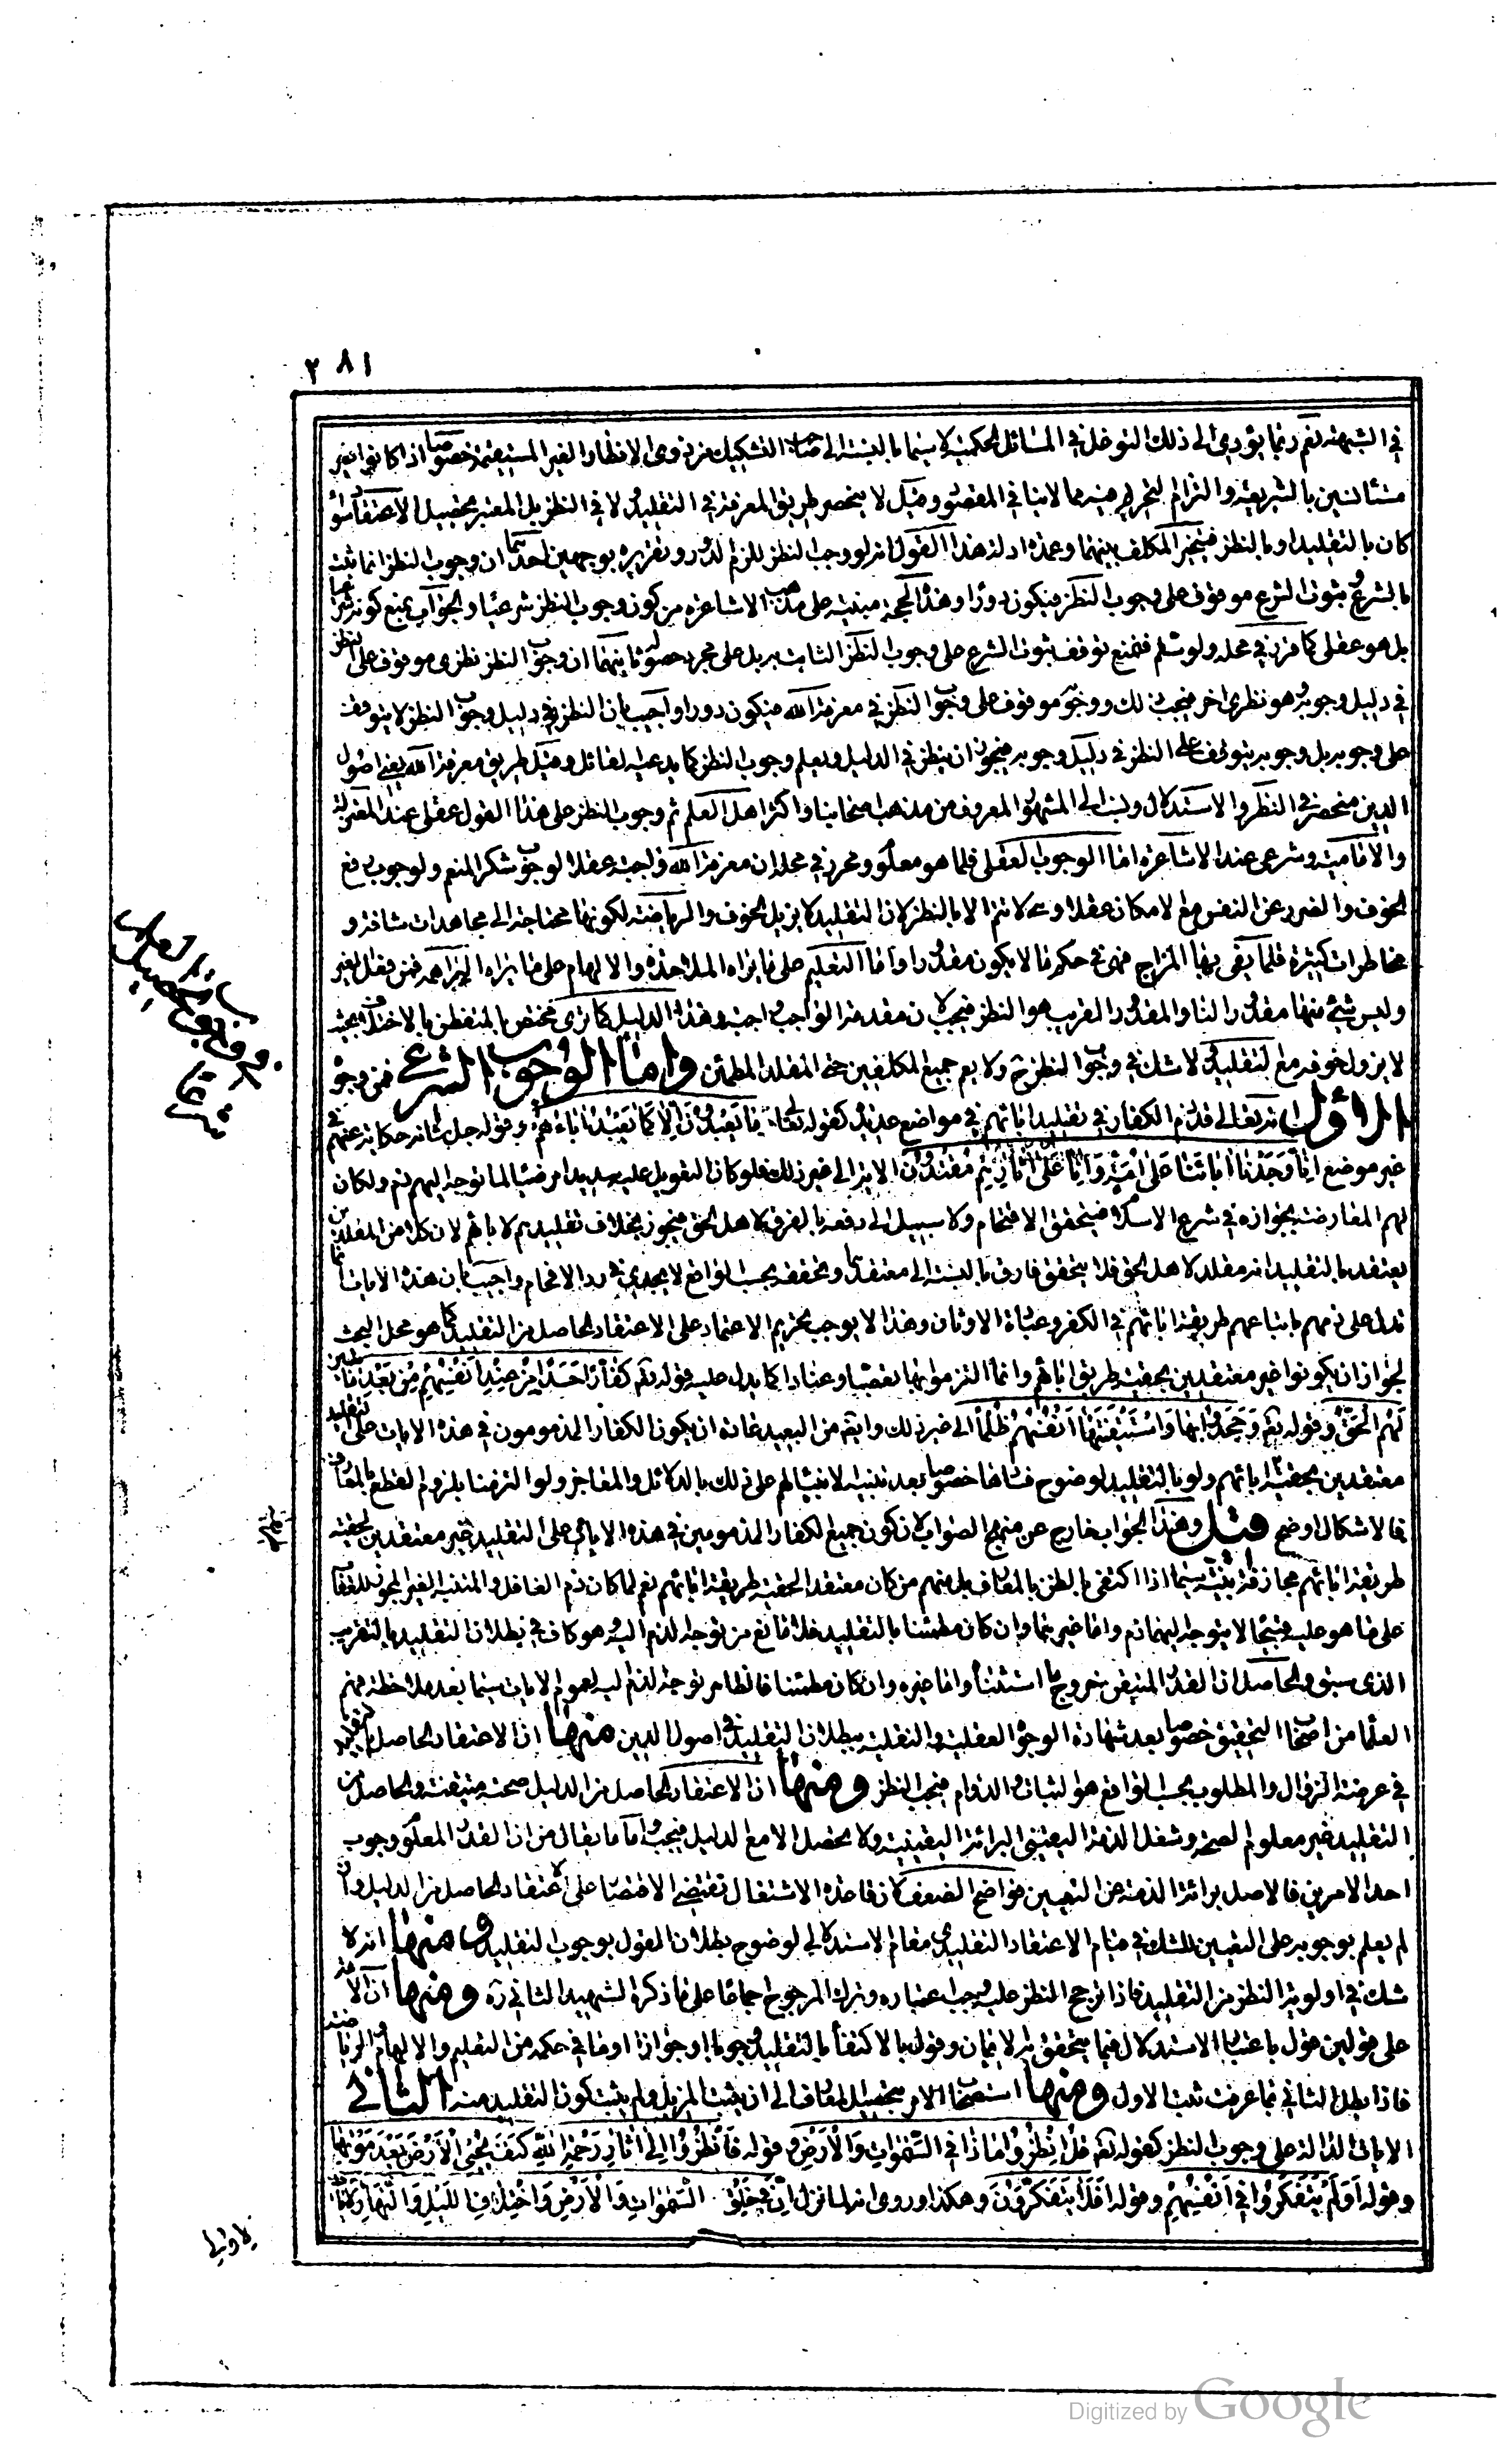 ٢٨١
في الشبهة نعم ربما يؤدي الى ذلك التوغل في المسائل الحكمية لا سيما بالنسبة الى التشكيك من ذوي الانظار الغير المستقيمة خصوصا اذا كانوا غير
مستأنسين بالشريعة والتزام التحرير عنه مما لا ينافي المقصود وقيل لا ينحصر طريق المعرفة في التقليد ولا في النظر بل المعتبر تحصيل الاعتقاد سواء
كان بالتقليد او بالنظر فيتخير المكلف بينهما وعمدة ادلة هذا القول انه لو وجب النظر للزم الدور وتقريره بوجهين احدهما ان وجوب النظر انما يثبت
بالشرع وثبوت الشرع موقوف على وجوب النظر فيكون دورا وهذه الحجة مبنية على مذهب الاشاعرة من كون وجوب النظر شرعيا والجواب بمنع كونه شرعيا
بل هو عقلي كما قرر في محله ولو سلم فنمنع توقف ثبوت الشرع على وجوب النظر الثابت به بل على مجرد حصوله ثانيهما ان وجوب النظر نظري موقوف على النظر
في دليل وجوبه وهو نظر اخر فيجب ذلك ووجوبه موقوف على وجوب النظر في معرفة الله فيكون دورا واجيب بان النظر في دليل وجوب النظر لا يتوقف
على وجوبه بل وجوبه يتوقف على النظر في دليل وجوبه فيجوز ان ينظر في الدليل ويعلم وجوب النظر كما يدعيه القائل وقيل طريق معرفة الله يعني اصول
الدين منحصر في النظر والاستدلال ونسب الى المشهور المعروف من مذهب اصحابنا واكثر اهل العلم ثم وجوب النظر على هذا القول عقلي عند المعتزلة
والامامية وشرعي عند الاشاعرة اما الوجوب العقلي فلما هو معلوم ومحرر في محله ان معرفة الله واجبة عقلا لوجوب شكر المنعم ولوجوب دفع
الخوف والضرر عن النفس مع الامكان عقلا وهي لا تتم الا بالنظر لان التقليد لا يزيل الخوف والرياضة لكونها محتاجة الى مجاهدات شاقة و
مخاطرات كثيرة فلما يقى بها المزاج فهى في حكم ما لا يكون مقدورا واما التعليم على ما يراه الملاحدة والالهام على ما يراه البراهمة فمن فعل الغير
وليس شئ منها مقدورا لنا والمقدور القريب هو النظر فيجب لان مقدمة الواجب واجبة وهذا الدليل كما ترى مختص بالمتفطن بالاختلاف بحيث
لا يزول خوفه مع التقليد ولا شك في وجوب النظر ح ولا يعم جميع المكلفين حتى المقلد المطمئن واما الوجوب الشرعي فمن وجوه
الاول انه تعالى قد ذم الكفار في تقليد ابائهم في مواضع عديدة كقوله تعالى ما تعبدون الا كما تعبد اباءهم وقوله جل شأنه حكاية عنهم في
غير موضع انا وجدنا اباءنا على امة وانا على اثارهم مقتدون الاية الى غير ذلك فلو كان التعويل عليه سديدا مرضيا لما توجه اليهم ذم ولكان
لهم المعارضة بجوازه في شرع الاسلام فيتحقق الافحام ولا سبيل الى دفعه بالفرق لاهل الحق فيجوز بخلاف تقليدهم لابائهم لان كلا من المقلدين
يعتقد بالتقليد انه مقلد لاهل الحق فلا يتحقق فارق بالنسبة الى معتقدهما وتحققه بحسب الواقع لا يجدي في رد الافحام واجيب بان هذه الايات انما
تدل على ذمهم باتباعهم طريقة ابائهم في الكفر وعبادة الاوثان وهذا لا يوجب تحريم الاعتماد على الاعتقاد الحاصل من التقليد كما هو محل البحث
لجواز ان يكونوا غير معتقدين بحقية طريق ابائهم وانما التزموا بها تعصبا وعنادا كما يدل عليه قوله تعم كفارا حسدا من عند انفسهم من بعد ما تبين
لهم الحق وقوله تعم وجحدوا بها واستيقنتها انفسهم ظلما الى غير ذلك وايضا من البعيد عادة ان يكون الكفار المذمومون في هذه الايات على التقليد
معتقدين بحقية ابائهم ولو بالتقليد لوضوح فسادها خصوصا بعد تنبيه الانبياء لهم على ذلك بالدلائل والمعاجز ولو التزمنا بلزوم القطع بالمعارف
فالاشكال اوضح قيل وهذا الجواب خارج عن منهج الصواب لان كون جميع الكفار المذمومين في هذه الايات على التقليد غير معتقدين بحقية
طريقة ابائهم مجازفة بينة سيما اذا اكتفى بالظن بالمعارف بل منهم من كان معتقدا لحقية طريقة ابائهم نعم لما كان ذم الغافل والمتنبه الغير المجوز للخلاف
على ما هو عليه قبيحا لا يتوجه اليهما ذم واما غيرهما وان كان مطمئنا بالتقليد فلا مانع من توجه الذم اليه وهو كاف في بطلان التقليد بالتقريب
الذى سبق والحاصل ان القدر المتيقن خروج ما استثنا واما غيره وان كان مطمئنا فالظاهر توجه الذم اليه لعموم الايات سيما بعد ملاحظة فهم
العلماء من اصحاب التحقيق خصوصا بعد شهادة الوجوه العقلية والنقلية ببطلان التقليد في اصول الدين منها ان الاعتقاد الحاصل بالتقليد
في عرضة الزوال والمطلوب بحسب الواقع هو الثبات والدوام فيجب النظر ومنها ان الاعتقاد الحاصل من الدليل صحته متيقنة والحاصل من
التقليد غير معلوم الصحة وشغل الذمة اليقينى البرائة اليقينية ولا يحصل الا مع الدليل فيجب واما ما يقال من ان القدر المعلوم وجوب
احد الامرين فالاصل برائة الذمة عن التعيين فواضح الضعف لان قاعدة الاشتغال تقتضي الاقتصار على الاعتقاد الحاصل من الدليل وان
لم يعلم بوجوبه على التعيين للشك في قيام الاعتقاد التقليدي مقام الاستدلالي لوضوح بطلان القول بوجوب التقليد ومنها انه لا
شك في اولوية النظر من التقليد فاذا ترجح النظر عليه وجب اعتباره وترك المرجوح اجماعا على ما ذكره الشهيد الثاني ره ومنها ان الامة
على قولين قول باعتبار الاستدلال فيما يتحقق به الايمان وقول بالاكتفاء بالتقليد وجوبا او جوازا او ما في حكمه من التعليم والالهام والرياضة
فاذا بطل الثاني بما عرفت ثبت الاول ومنها استصحاب الامر بتحصيل المعارف الى ان يثبت المزيل ولم يثبت كون التقليد منه الثاني
الايات الدالة على وجوب النظر كقوله تعم قل انظروا ماذا في السموات والارض وقوله فانظروا الى اثار رحمة الله كيف يحيي الارض بعد موتها
وقوله اولم يتفكروا في انفسهم وقوله افلا يتفكرون وهكذا وروى انه لما نزل ان في خلق السموات والارض واختلاف الليل والنهار لايات
لاولي